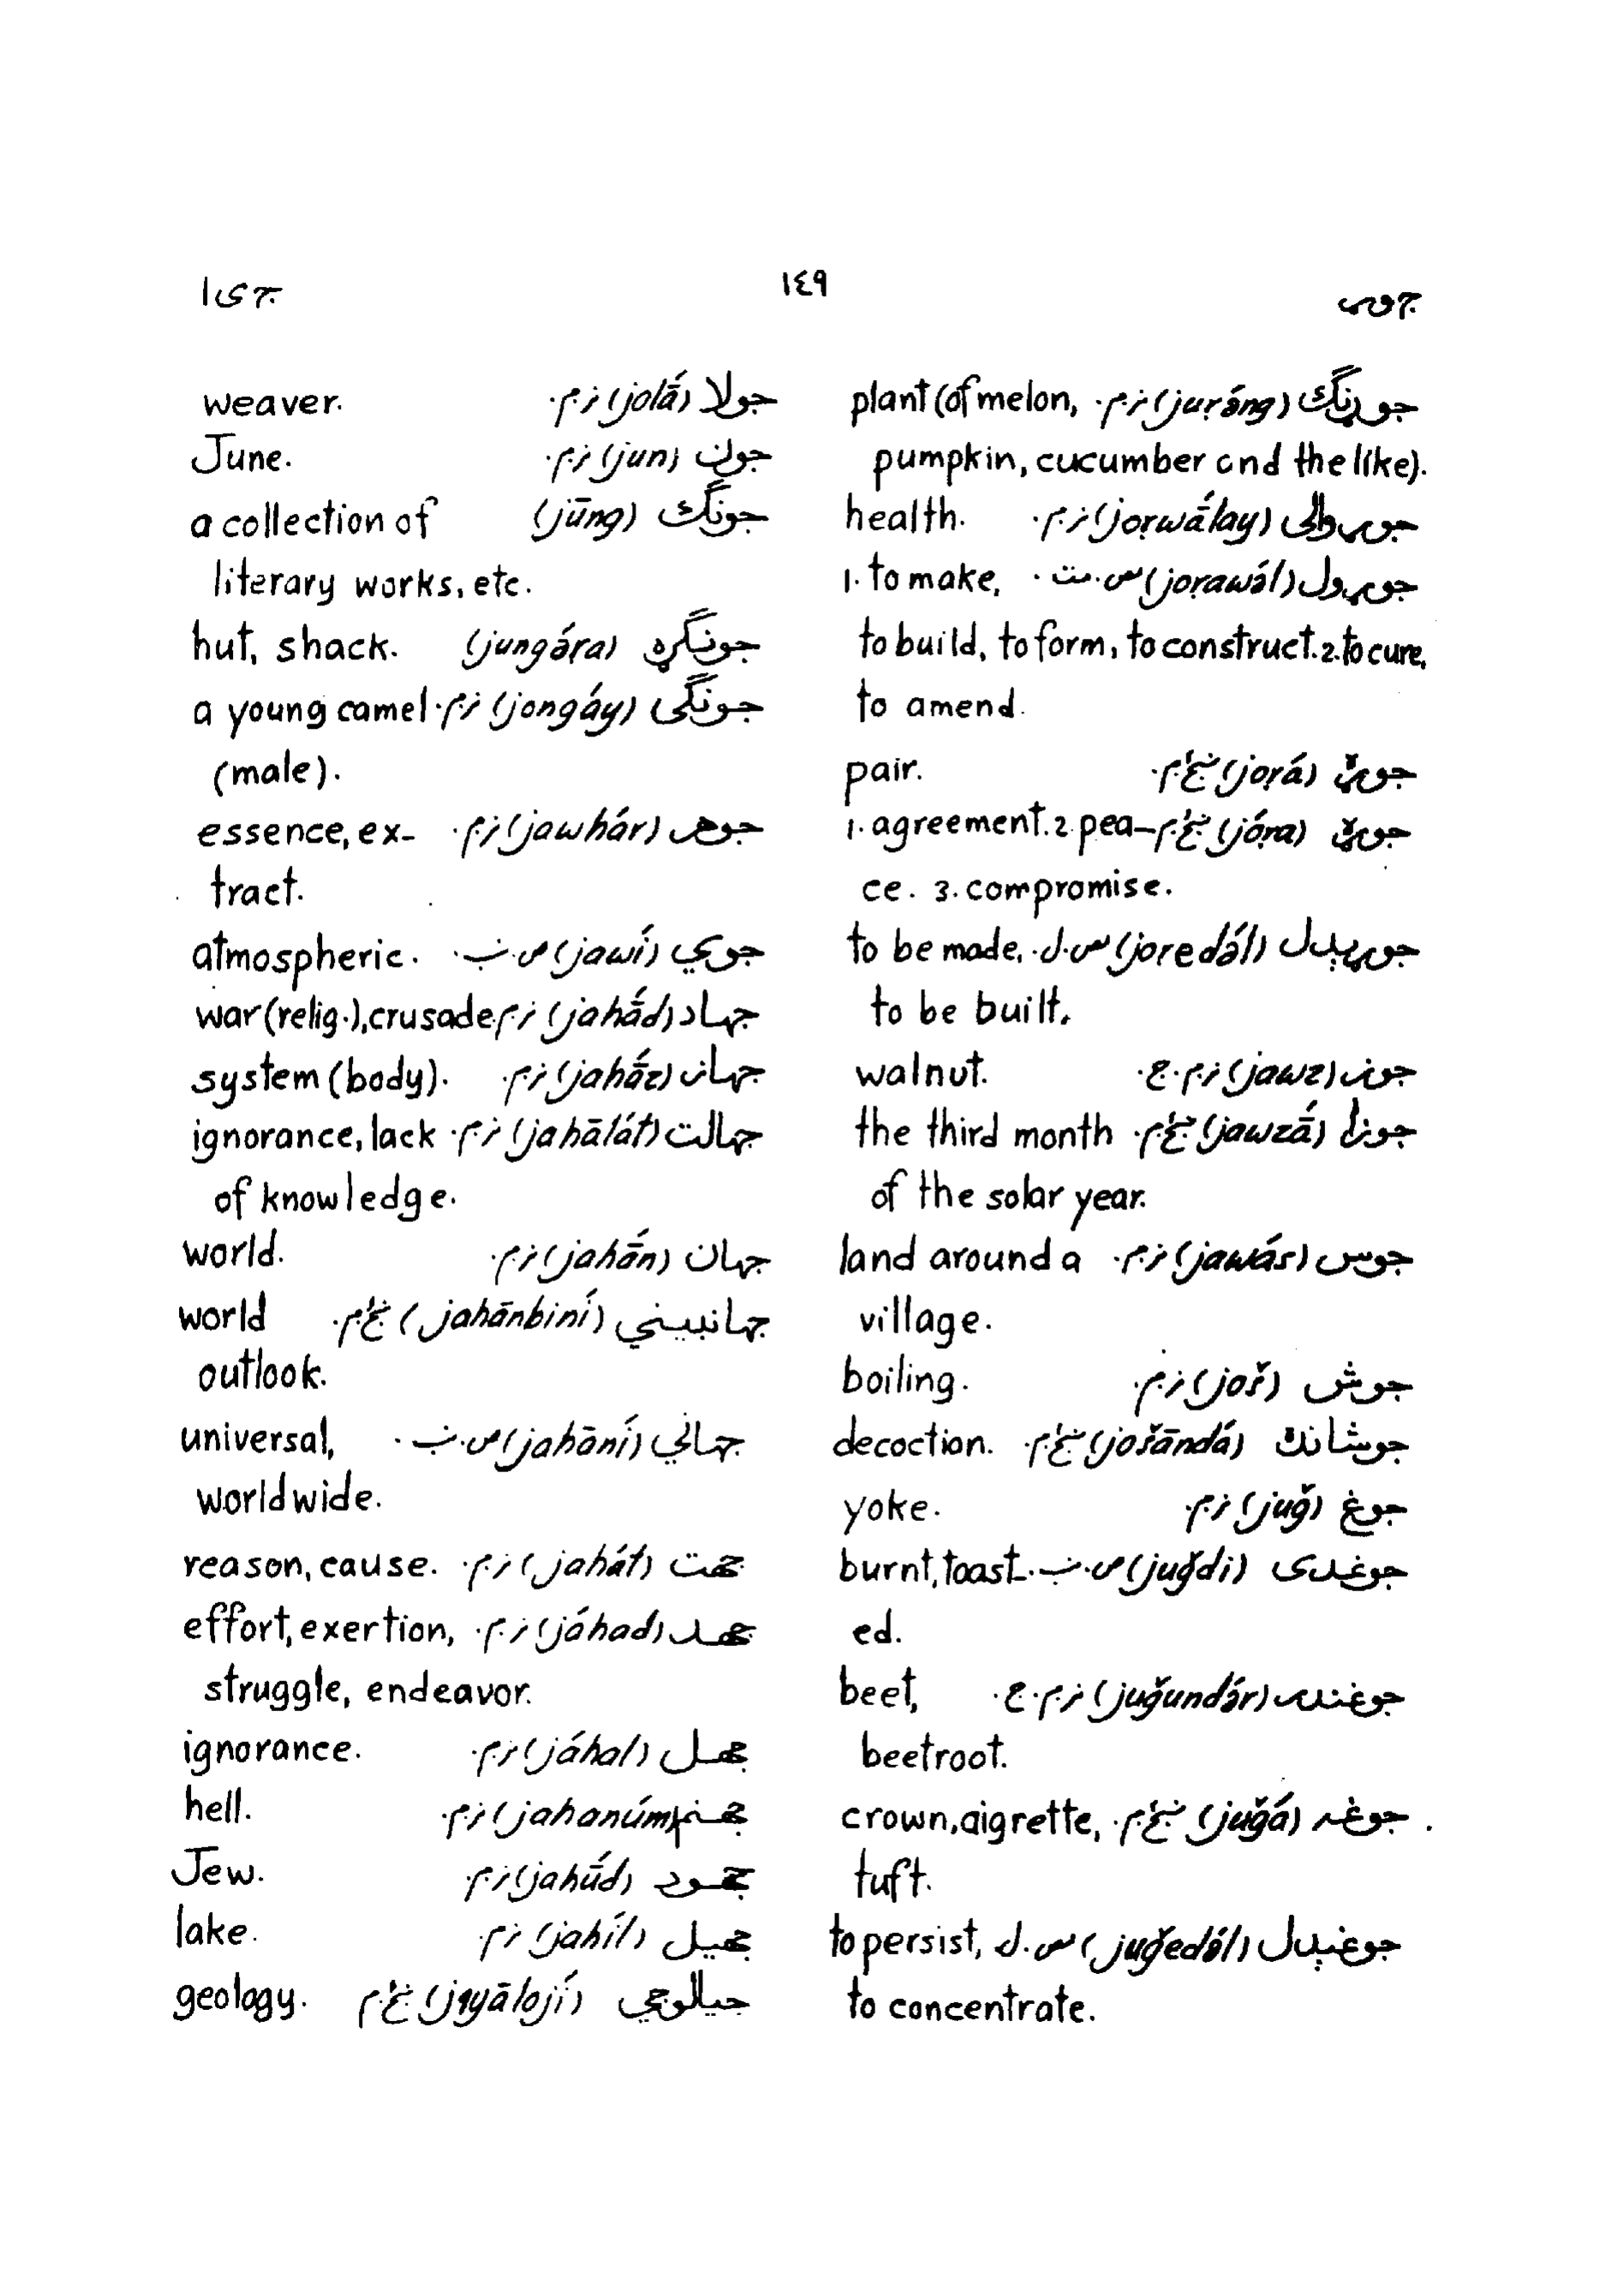 جوړ
١٤٩
ج ی ا
جوړنګ (juṛáng) ن.م. plant (of melon,
pumpkin, cucumber and the like).
جوړوالی (joṛwā́lay) ن.م. health.
جوړول (joṛawə́l) ص.مت. 1. to make,
to build, to form, to construct. 2. to cure,
to amend.
جوړه (joṛá) ښځ.م. pair.
جوړه (jóṛa) ښځ.م. 1. agreement. 2. pea-
ce. 3. compromise.
جوړېدل (joṛedə́l) ص.ل. to be made,
to be built.
جوز (jawz) ن.م.ج. walnut.
جوزا (jawzā́) ښځ.م. the third month
of the solar year.
جوس (jawás) ن.م. land around a
village.
جوش (još) ن.م. boiling.
جوشانده (jošāndá) ښځ.م. decoction.
جوغ (juğ) ن.م. yoke.
جوغدی (juğdi) ص.ب. burnt, toast-
ed.
جوغندر (juğundə́r) ن.م.ج. beet,
beetroot.
جوغه (juğá) ښځ.م. crown, aigrette,
tuft.
جوغېدل (juğedə́l) ص.ل. to persist,
to concentrate.
جولا (jolā́) ن.م. weaver.
جون (jun) ن.م. June.
جونګ (jūng) a collection of
literary works, etc.
جونګړه (jungáṛa) hut, shack.
جونګی (jongáy) ن.م. a young camel
(male).
جوهر (jawhár) ن.م. essence, ex-
tract.
جوي (jawí) ص.ب. atmospheric.
جهاد (jahā́d) ن.م. war (relig.), crusade
جهاز (jahā́z) ن.م. system (body).
جهالت (jahālát) ن.م. ignorance, lack
of knowledge.
جهان (jahā́n) ن.م. world.
جهانبيني (jahānbiní) ښځ.م. world
outlook.
جهاني (jahāní) ص.ب. universal,
worldwide.
جهت (jahát) ن.م. reason, cause.
جهد (jáhad) ن.م. effort, exertion,
struggle, endeavor.
جهل (jáhal) ن.م. ignorance.
جهنم (jahanúm) ن.م. hell.
جهود (jahū́d) ن.م. Jew.
جهيل (jahíl) ن.م. lake.
جيالوجي (jiyālojí) ښځ.م geology.